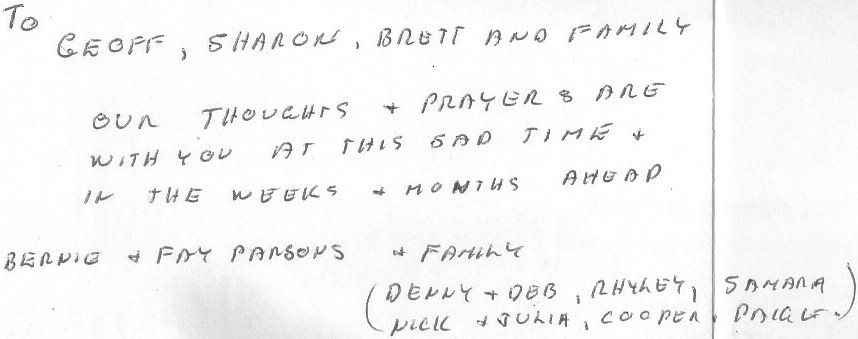 TO
GEOFF, SHARON, BRETT AND FAMILY
OUR THOUGHTS + PRAYERS ARE
WITH YOU AT THIS SAD TIME +
IN THE WEEKS + MONTHS AHEAD
BERNIE + FAY PARSONS + FAMILY
(DENNY + DEB, RHYLEY, SAMARA
NICK + JULIA, COOPER, PAIGE.)